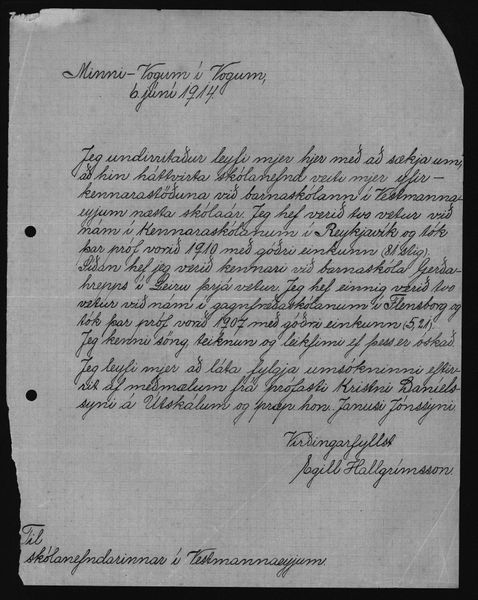 Minni-Vogum í Vogum,
6. júní 1914.
Jeg undirritaður leyfi mjer hjer með að sækja um,
að hin háttvirta skólanefnd veiti mjer yfir-
kennarastöðuna við barnaskólann í Vestmanna-
eyjum næsta skólaár. Jeg hef verið two vetur við
nám í Kennaraskólanum í Reykjavík og tók
þar próf vorið 1910 með góðri einkunn (81 stig).
Síðan hef jeg verið kennari við barnaskóla Gerða-
hrepps í Leiru þrjá vetur. Jeg hef einnig verið two
vetur við nám í gagnfræðaskólanum í Flensborg og
tók þar próf vorið 1907 með góðri einkunn (5,21).
Jeg kenni söng, teiknun og leikfimi ef þess er óskað.
Jeg leyfi mjer að láta fylgja umsókninni eftir-
rit af meðmælum frá prófasti Kristni Daníels-
syni á Útskálum og præp. hon. Janusi Jónssyni.
Virðingarfyllst
Egill Hallgrímsson.
Til
skólanefndarinnar í Vestmannaeyjum.